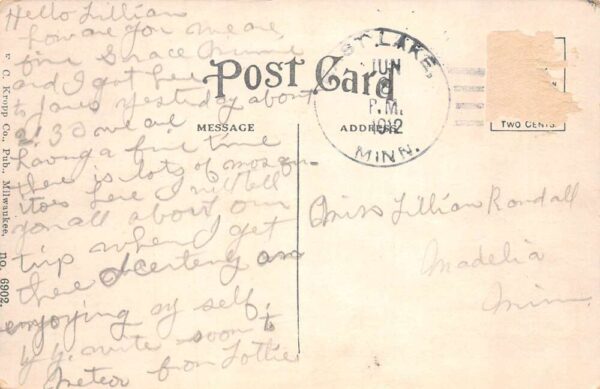 Hello Lillian
how are you we are
fine Grace Minnie
and I got here
to Jones yesterday about
2:30 we are
having a fine time
there is lots of mosqu-
itoes here I will tell
you all about our
trip when I get
there I certeny am
enjoying my self.
by by. write soon to
from Lottie
Post Card
MESSAGE
ADDRESS
LAKE,
JUN
P.M.
1912
MINN.
TWO CENTS
Miss Lillian Randall
Madelia
Minn.
C. Kropp Co., Pub., Milwaukee.
no. 6902.